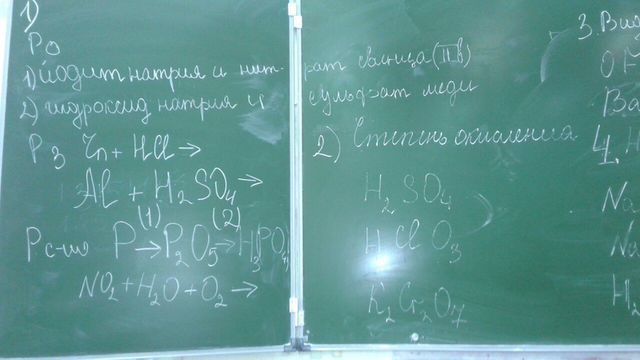 1)
Ро
1) йодит натрия и нитрат свинца (II в)
2) гидроксид натрия и сульфат меди
Рз Zn + HCl →
Al + H2SO4 →
(1) (2)
Рс-ю P → P2O5 → H3PO4
NO2 + H2O + O2 →
2) Степень окисления
H2SO4
HClO3
K2Cr2O7
3. Вид
4. H
Na
Na
H2